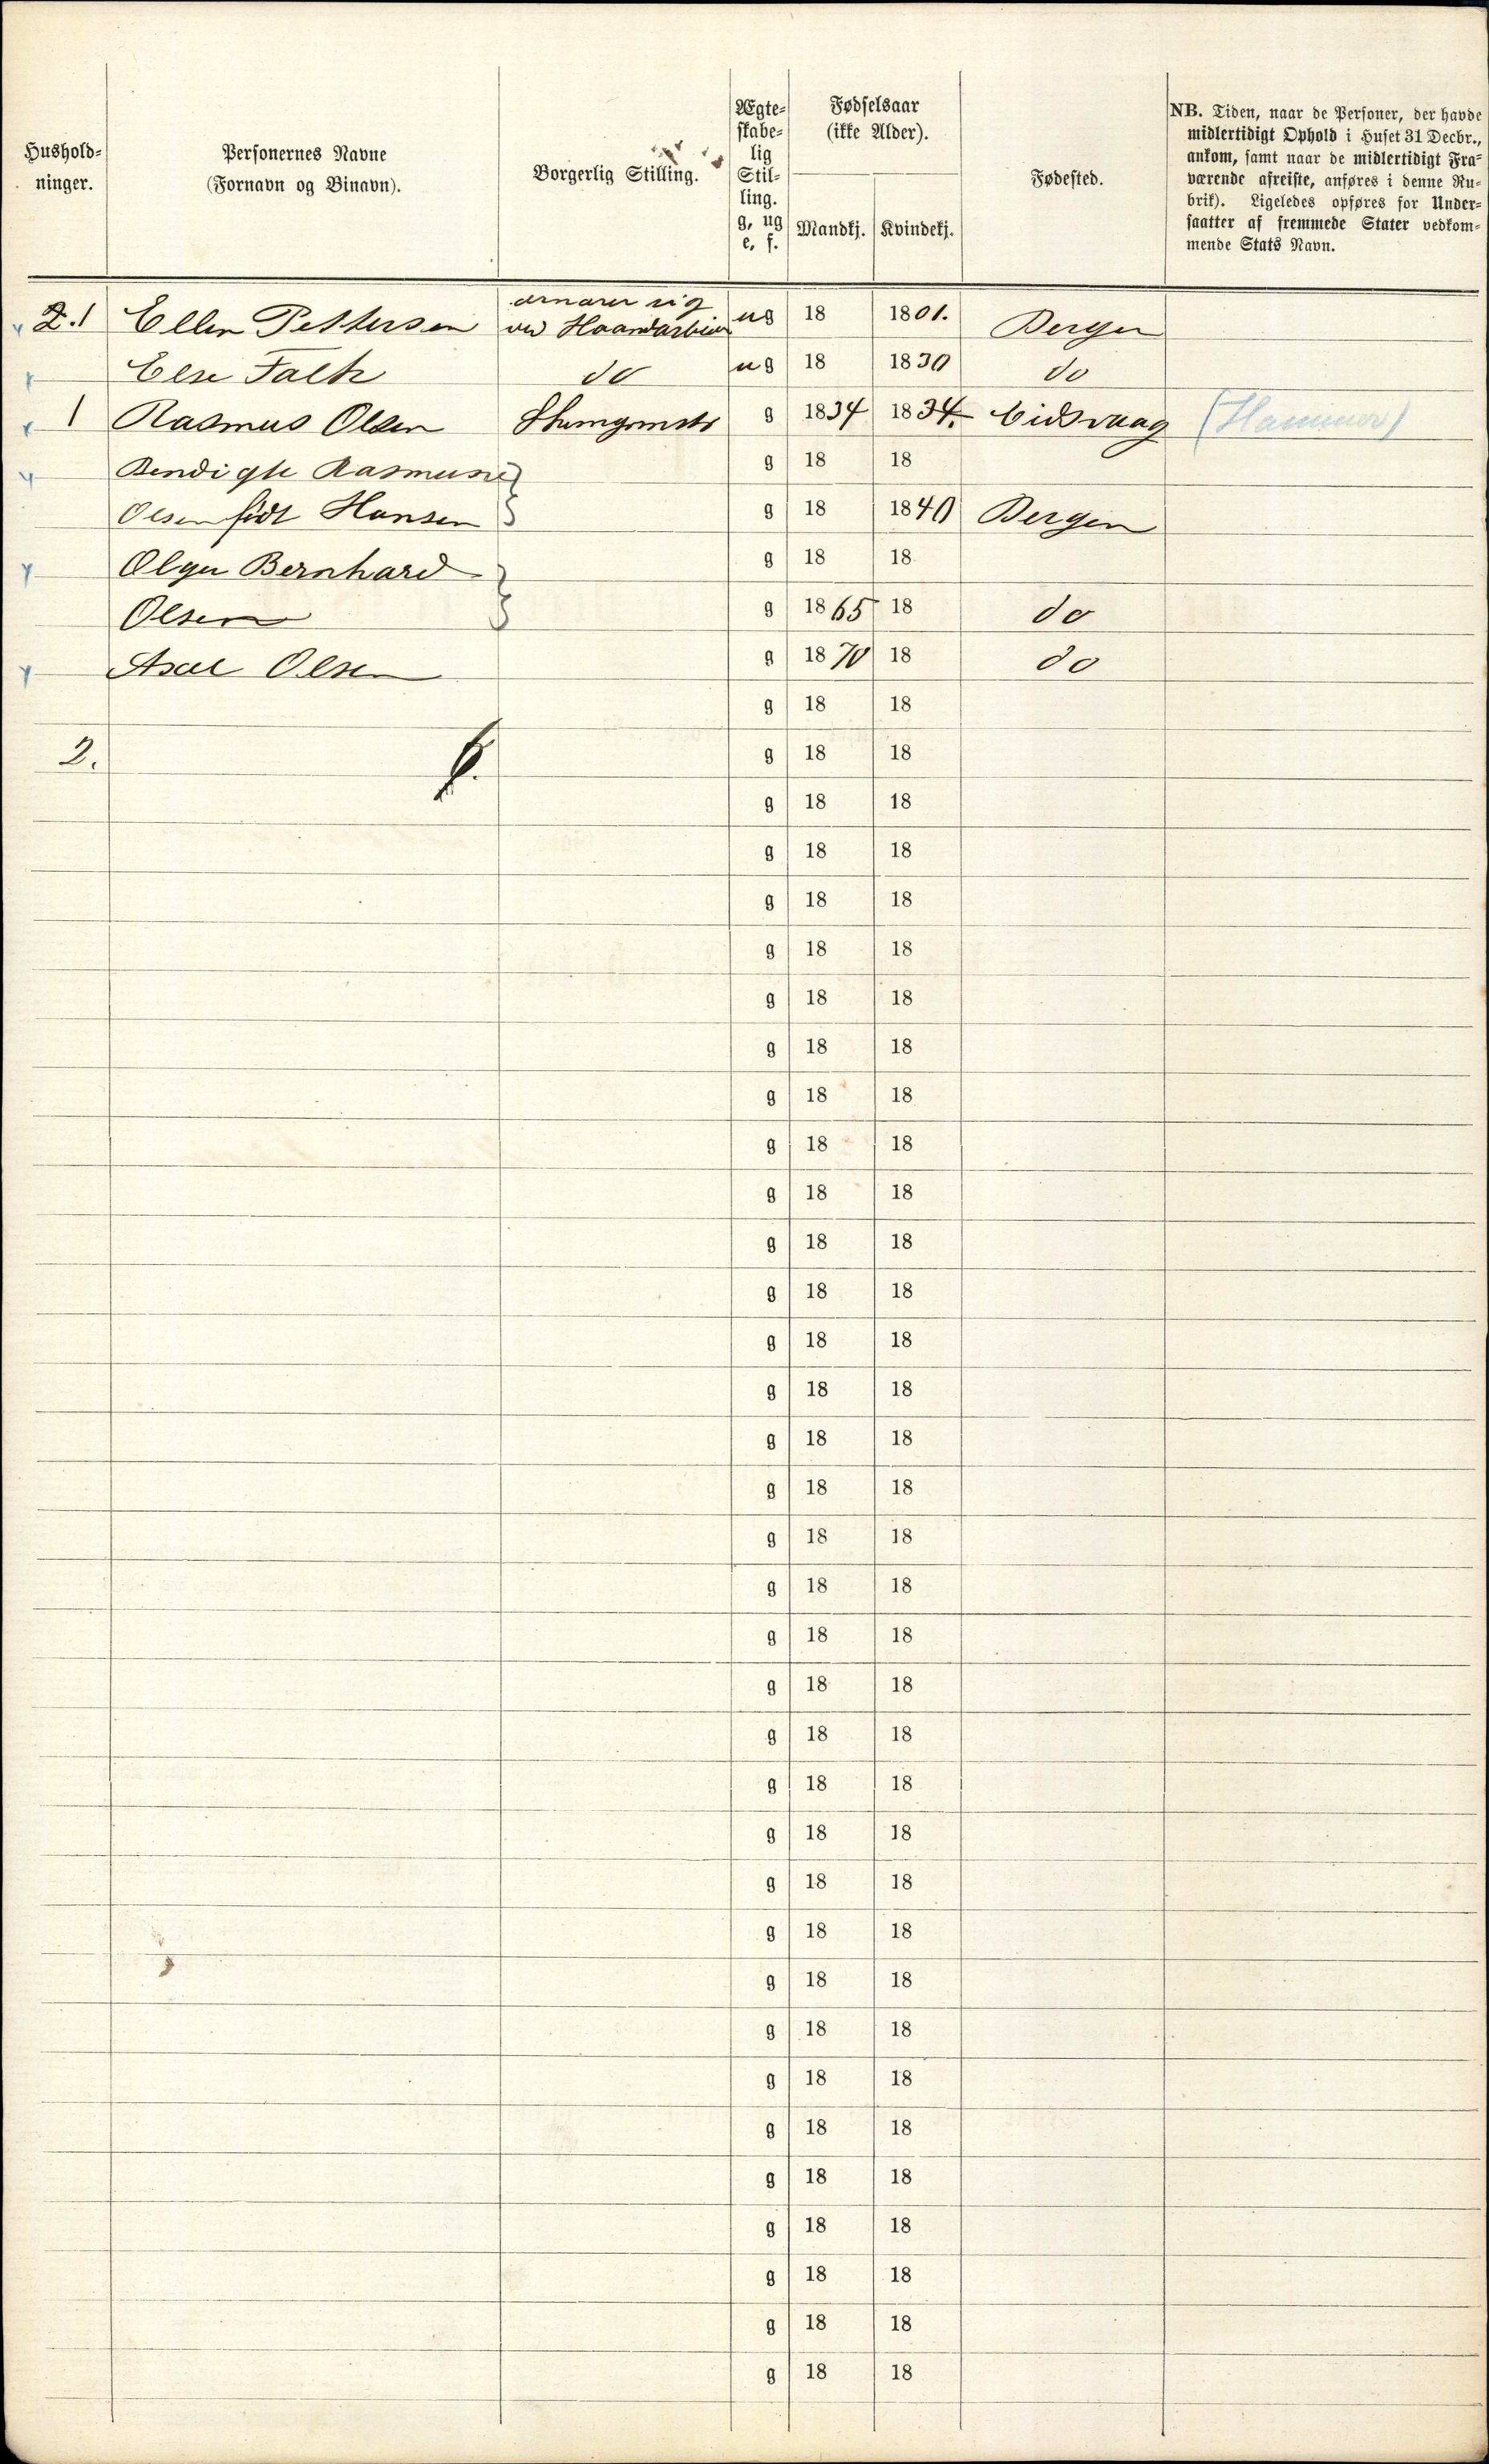 Hushold-
ninger.
Personernes Navne
(Fornavn og Binavn).
Borgerlig Stilling.
Ægte-
skabe-
lig
Stil-
ling.
g, ug
e, f.
Fødselsaar
(ikke Alder).
Mandkj. Kvindekj.
Fødested.
NB. Tiden, naar de Personer, der havde
midlertidigt Ophold i Huset 31 Decbr.,
ankom, samt naar de midlertidigt Fra-
værende afreiste, anføres i denne Ru-
brik). Ligeledes opføres for Under-
saatter af fremmede Stater vedkom-
mende Stats Navn.
ernærer sig
2.1 Ellen Pettersen ved Haandarbeide ug 18 1801. Bergen
Else Falck do ug 18 1830 do
1 Rasmus Olsen g 1834 1834. Eidsvaag (Hammer)
Bendigte Rasmusine g 18 18
Olsen født Hansen g 18 1840 Bergen
Olger Bernhard g 18 18
Olsen g 1865 18 do
Axel Olsen g 1870 18 do
g 18 18
2. 6. g 18 18
g 18 18
g 18 18
g 18 18
g 18 18
g 18 18
g 18 18
g 18 18
g 18 18
g 18 18
g 18 18
g 18 18
g 18 18
g 18 18
g 18 18
g 18 18
g 18 18
g 18 18
g 18 18
g 18 18
g 18 18
g 18 18
g 18 18
g 18 18
g 18 18
g 18 18
g 18 18
g 18 18
g 18 18
g 18 18
g 18 18
g 18 18
g 18 18
g 18 18